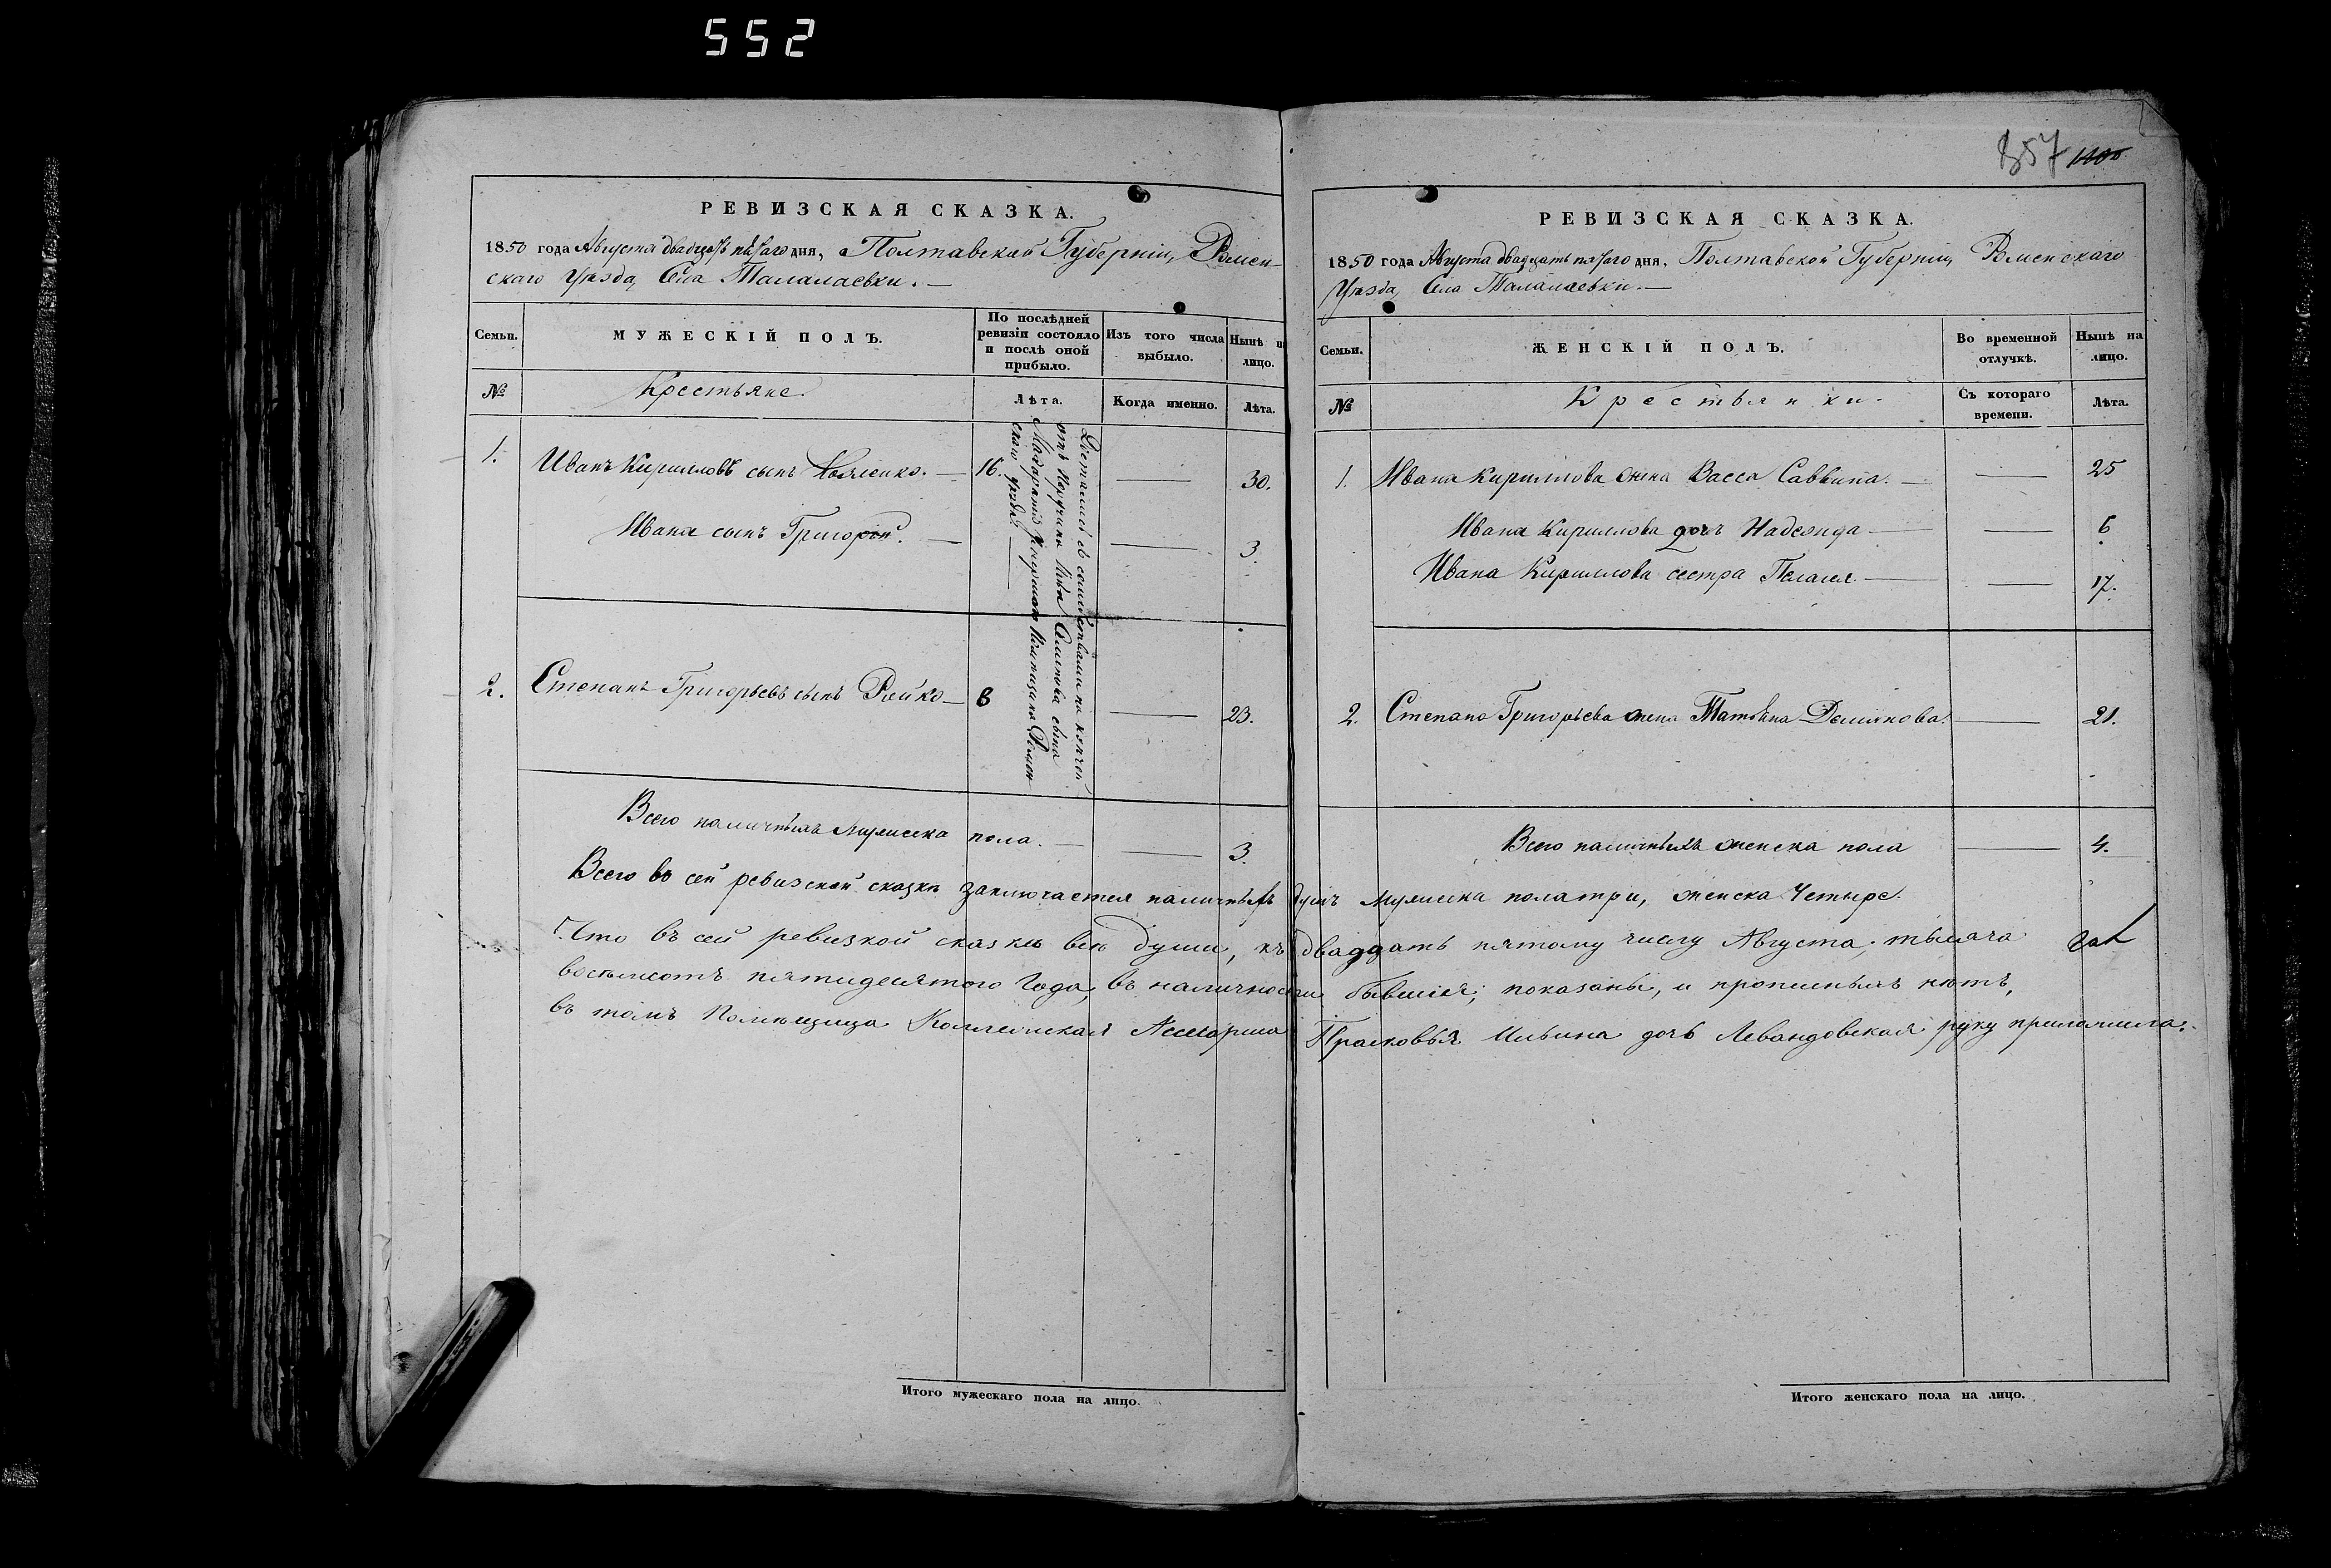 552
РЕВИЗСКАЯ СКАЗКА.
1850 года Августа двадцать пятаго дня, Полтавской Губерніи, Ромен
скаго Уѣзда, Села Талалаевки. —
Семьи.
МУЖЕСКІЙ ПОЛЪ.
По послѣдней ревизіи состояло и послѣ оной прибыло.
Изъ того числа выбыло.
Нынѣ на лицо.
№
Крестьяне.
Лѣта.
Когда именно.
Лѣта.
1. Иванъ Кирилловъ сынъ — 16. — 30.
Ивана сынъ Григорій. — — 3.
2. Степанъ Григорьевъ сынъ Рейко — 8 — 23.
Достались въ
отъ сына
Ромен
скаго уѣзда. —
Всего наличныхъ мужеска пола. — — 3.
857 1100
РЕВИЗСКАЯ СКАЗКА.
1850 года Августа двадцать пятаго дня, Полтавской Губерніи, Роменскаго
Уѣзда, Села Талалаевки. —
Семьи.
ЖЕНСКІЙ ПОЛЪ.
Во временной отлучкѣ.
Нынѣ на лицо.
№
Крестьянки.
Съ котораго времени.
Лѣта.
1. Ивана Кириллова жена Васса Саввина. — — 25
Ивана Кириллова дочь Надежда — — 6
Ивана Кириллова сестра Пелагея — — 17.
2. Степана Григорьева жена Татьяна Демьянова. — 21.
Всего наличныхъ женска пола — 4.
Всего въ сей ревизской сказкѣ заключается наличныхъ душъ мужеска пола три, женска четыре.
Что въ сей ревизкой сказкѣ всѣ души, къ двадцать пятому числу Августа, тысяча
восемьсотъ пятидесятого года, въ наличности бывшія, показаны, и прописныхъ нѣтъ,
въ томъ Помѣщица Коллежская Асесорша Прасковья Ильина дочь Левандовская руку приложила.
Итого мужескаго пола на лицо.
Итого женскаго пола на лицо.